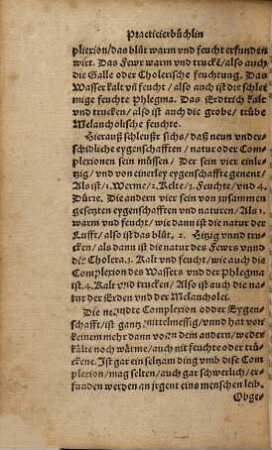 Practicierbüchlin
plexion/das blůt warm vnd feucht erfunden
wirt. Das Fewr warm vnd truckē/also auch
die Galle oder Cholerische feuchtung. Das
Wasser kalt vñ feucht / also auch ist der schlei
mige feuchte Phlegma. Das Erdtrich kalt
vnd trucken/ also ist auch die grobe/ trübe
Melancholische feuchte.
Hierauß schleußt sichs/daß neun vnder-
schidliche eygenschafften / natur oder Com
plexionen sein müssen / Der sein vier einle-
tzig/ vnd von einerley eygenschafft genent/
Als ist/1. Werme/2. Kelte/3. Feuchte/vnd 4.
Dürre. Die andern vier sein von zusammen
gesetzten eygenschafften vnd naturen/ Als 1.
warm vnd feucht/ wie dann ist die natur der
Lufft/also ist das blůt. 2. Hitzig vnnd tru-
cken/als dann ist die natur des Fewrs vnnd
die Cholera. 3. Kalt vnd feucht/wie auch die
Complexion des Wassers vnd der Phlegma
ist. 4. Kalt vnd trucken/ Also ist auch die na
tur der Erden vnd der Melancholei.
Die neundte Complexion odder Eygen-
schafft/ist gantz mittelmessig/vnnd hat von
keinem mehr dann von dem andern/weder
kälte noch wärme/auch nit feuchte oder trü-
ckene. Ist gar ein seltzam ding vmb dise Com
plexion/ mag selten/ auch gar schwerlich/er-
funden werden an jrgent eins menschen leib.
Obge-